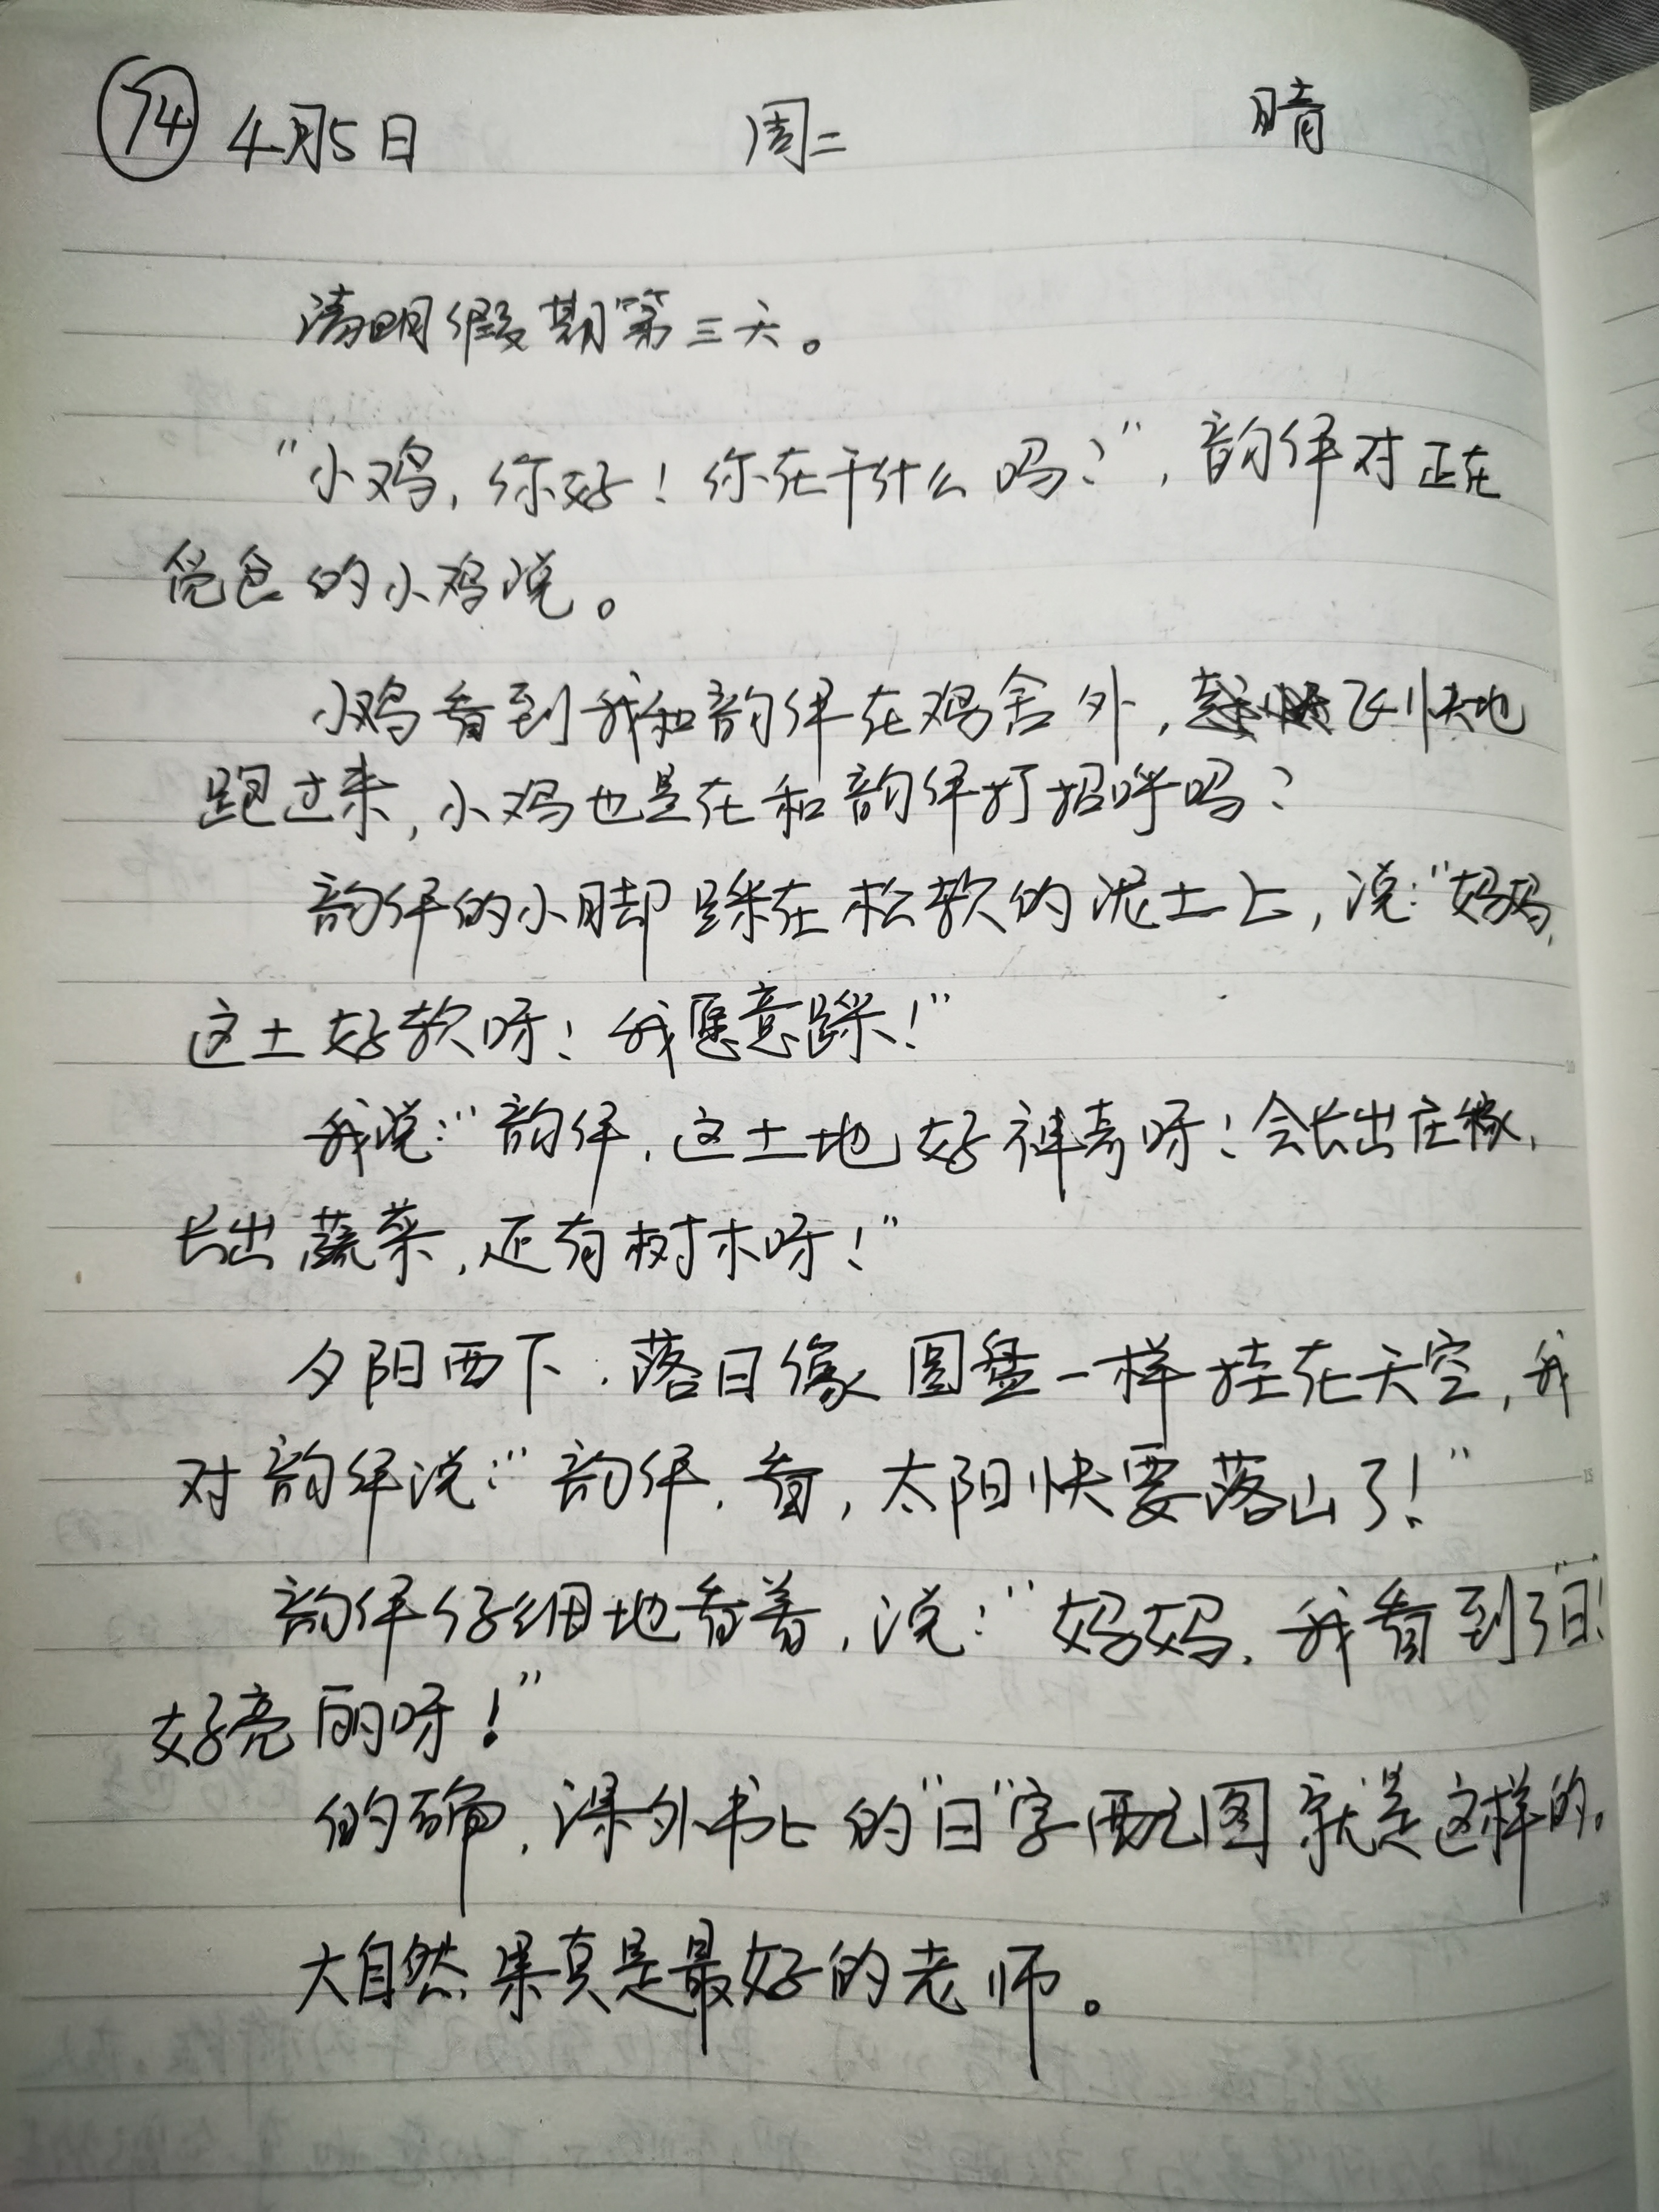 74 4月5日 周二 晴
清明假期第三天。
"小鸡，你好！你在干什么吗？"，韵伴对正在
觅食的小鸡说。
小鸡看到我和韵伴在鸡舍外，飞快地
跑过来，小鸡也是在和韵伴打招呼吗？
韵伴的小脚踩在松软的泥土上，说："妈妈，
这土好软呀！我愿意踩！"
我说："韵伴，这土地好神奇呀！会长出庄稼，
长出蔬菜，还有树木呀！"
夕阳西下，落日像圆盘一样挂在天空，我
对韵伴说："韵伴，看，太阳快要落山了！"
韵伴仔细地看着，说："妈妈，我看到了"日"！
好亮丽呀！"
的确，课外书上的"日"字配图就是这样的。
大自然果真是最好的老师。